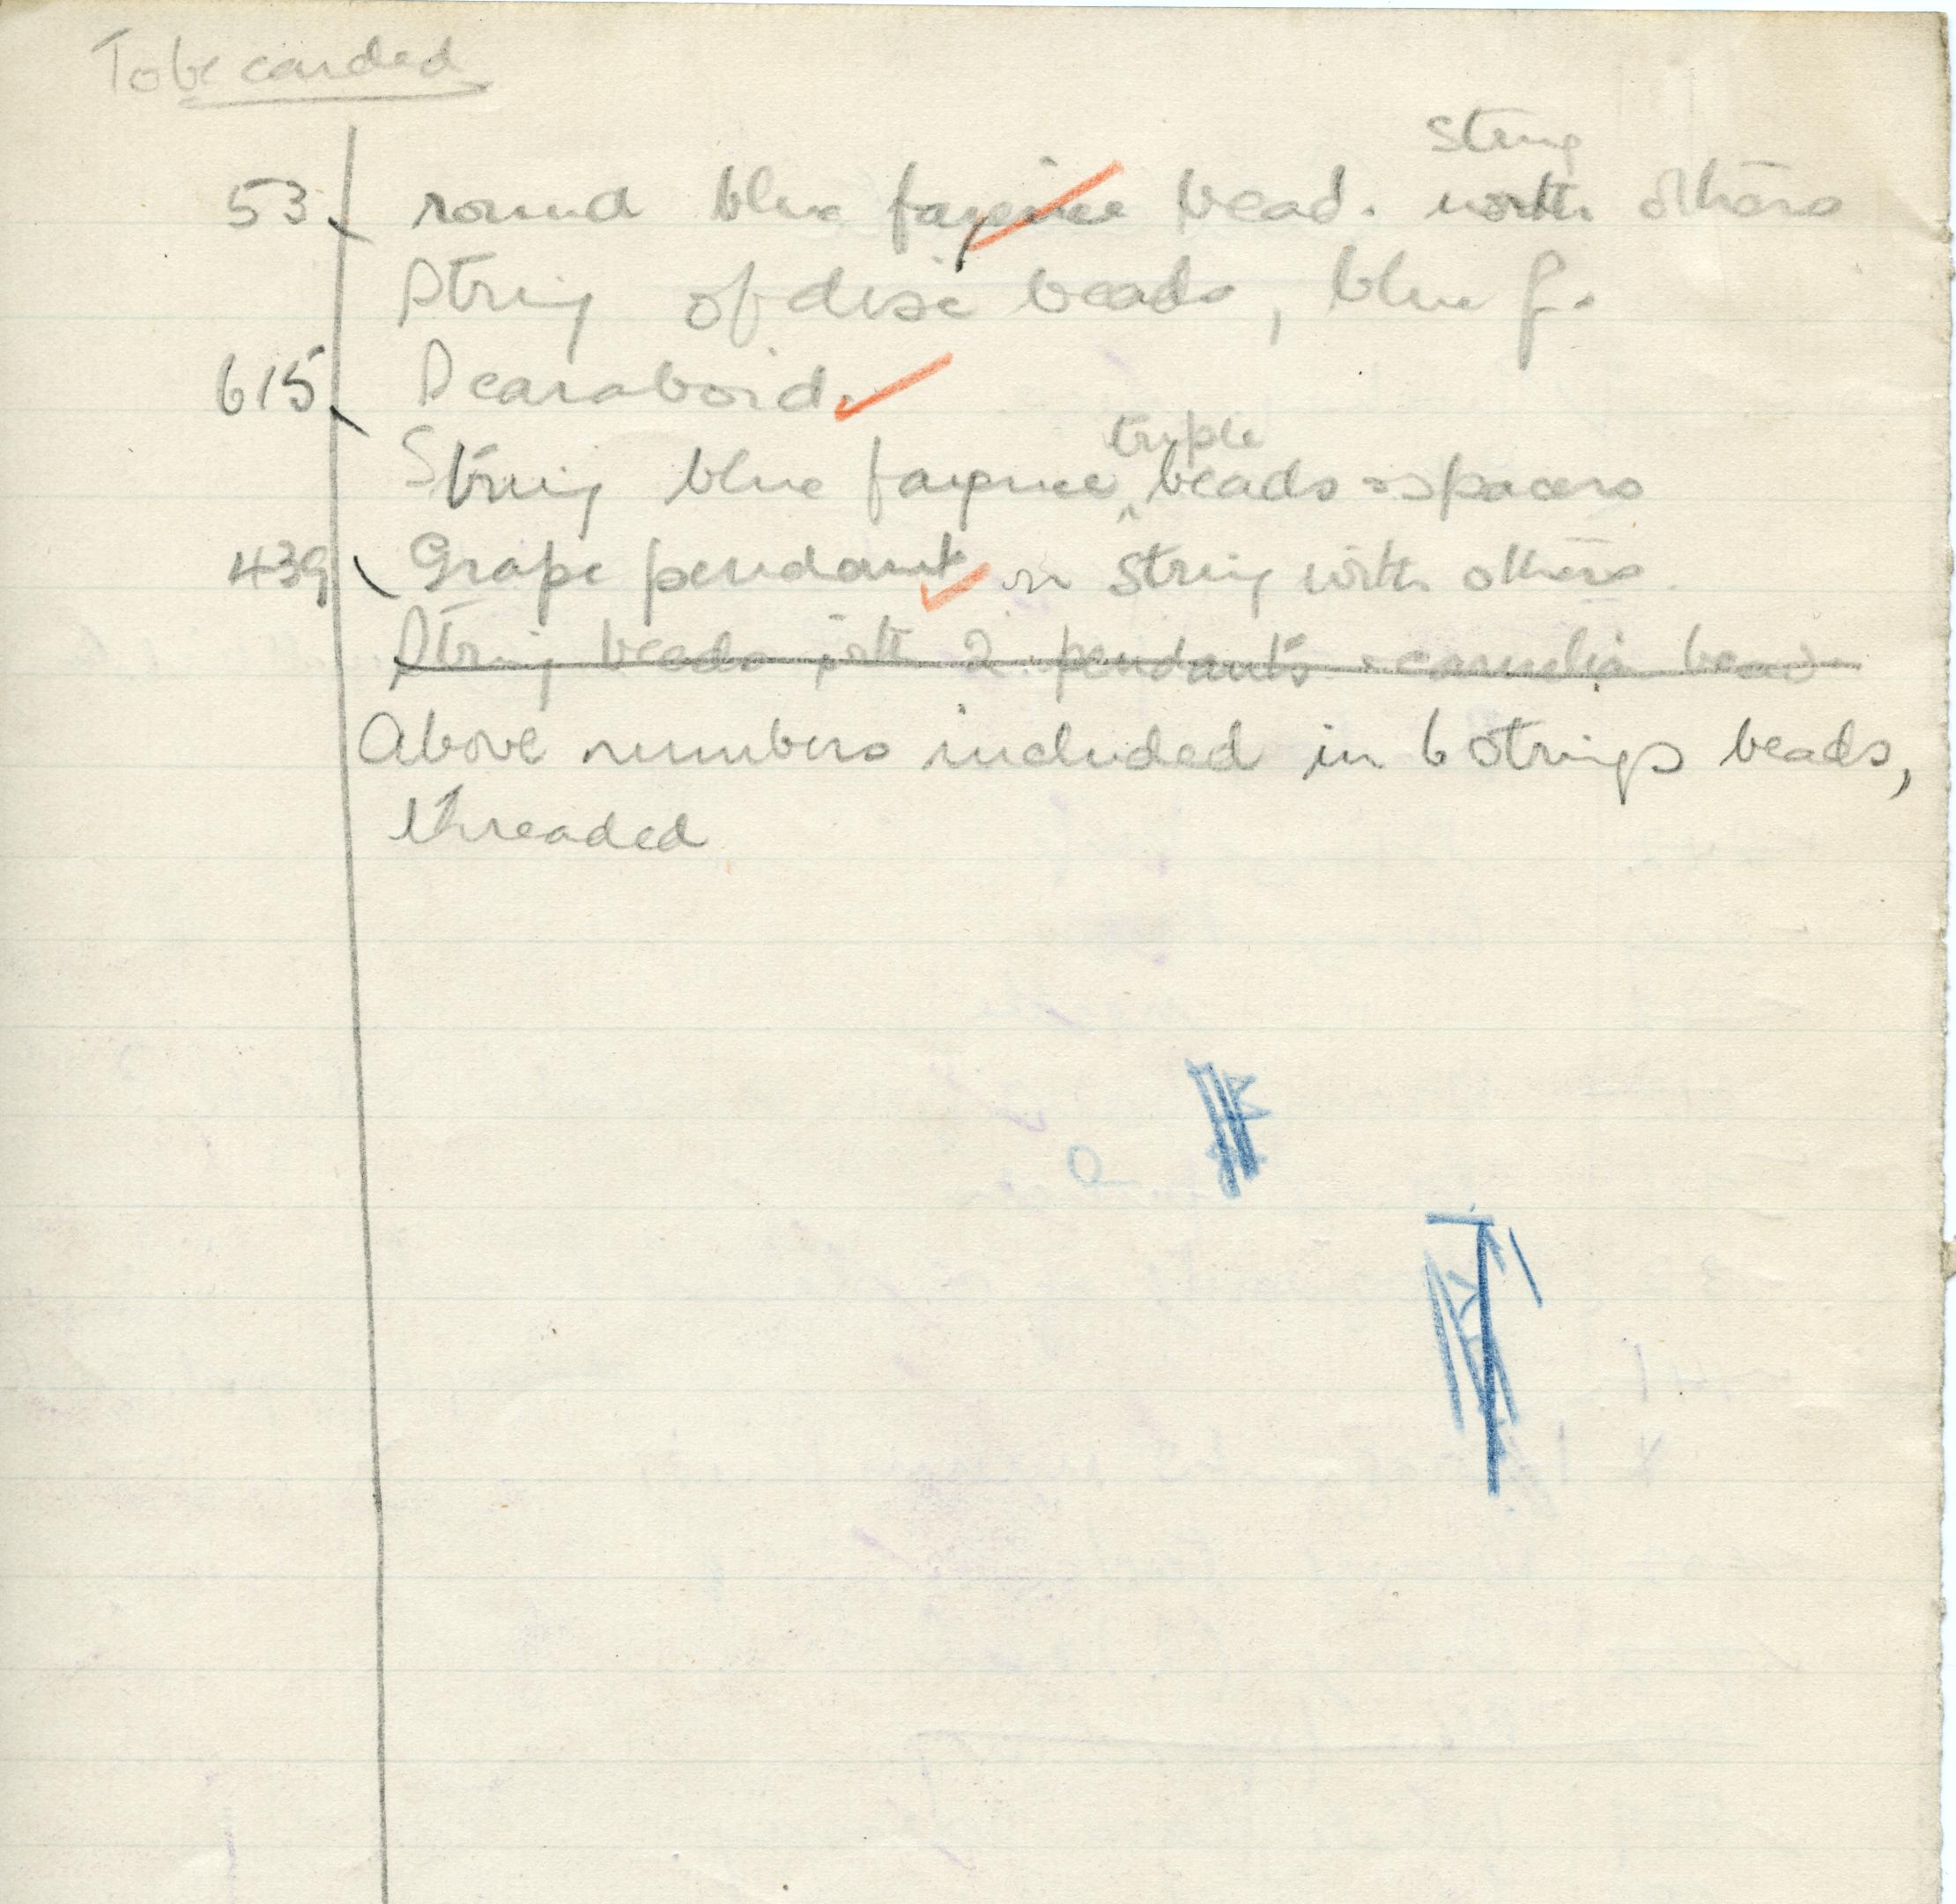 To be carded
string
53 round blue fayence bead. with others
String of disc beads, blue f.
615 Scaraboid.
triple
String blue fayence beads & spacers
439 Grape pendant on string with others.
String beads with 2 pendants & carnelian bead
Above numbers included in 6 strings beads,
threaded